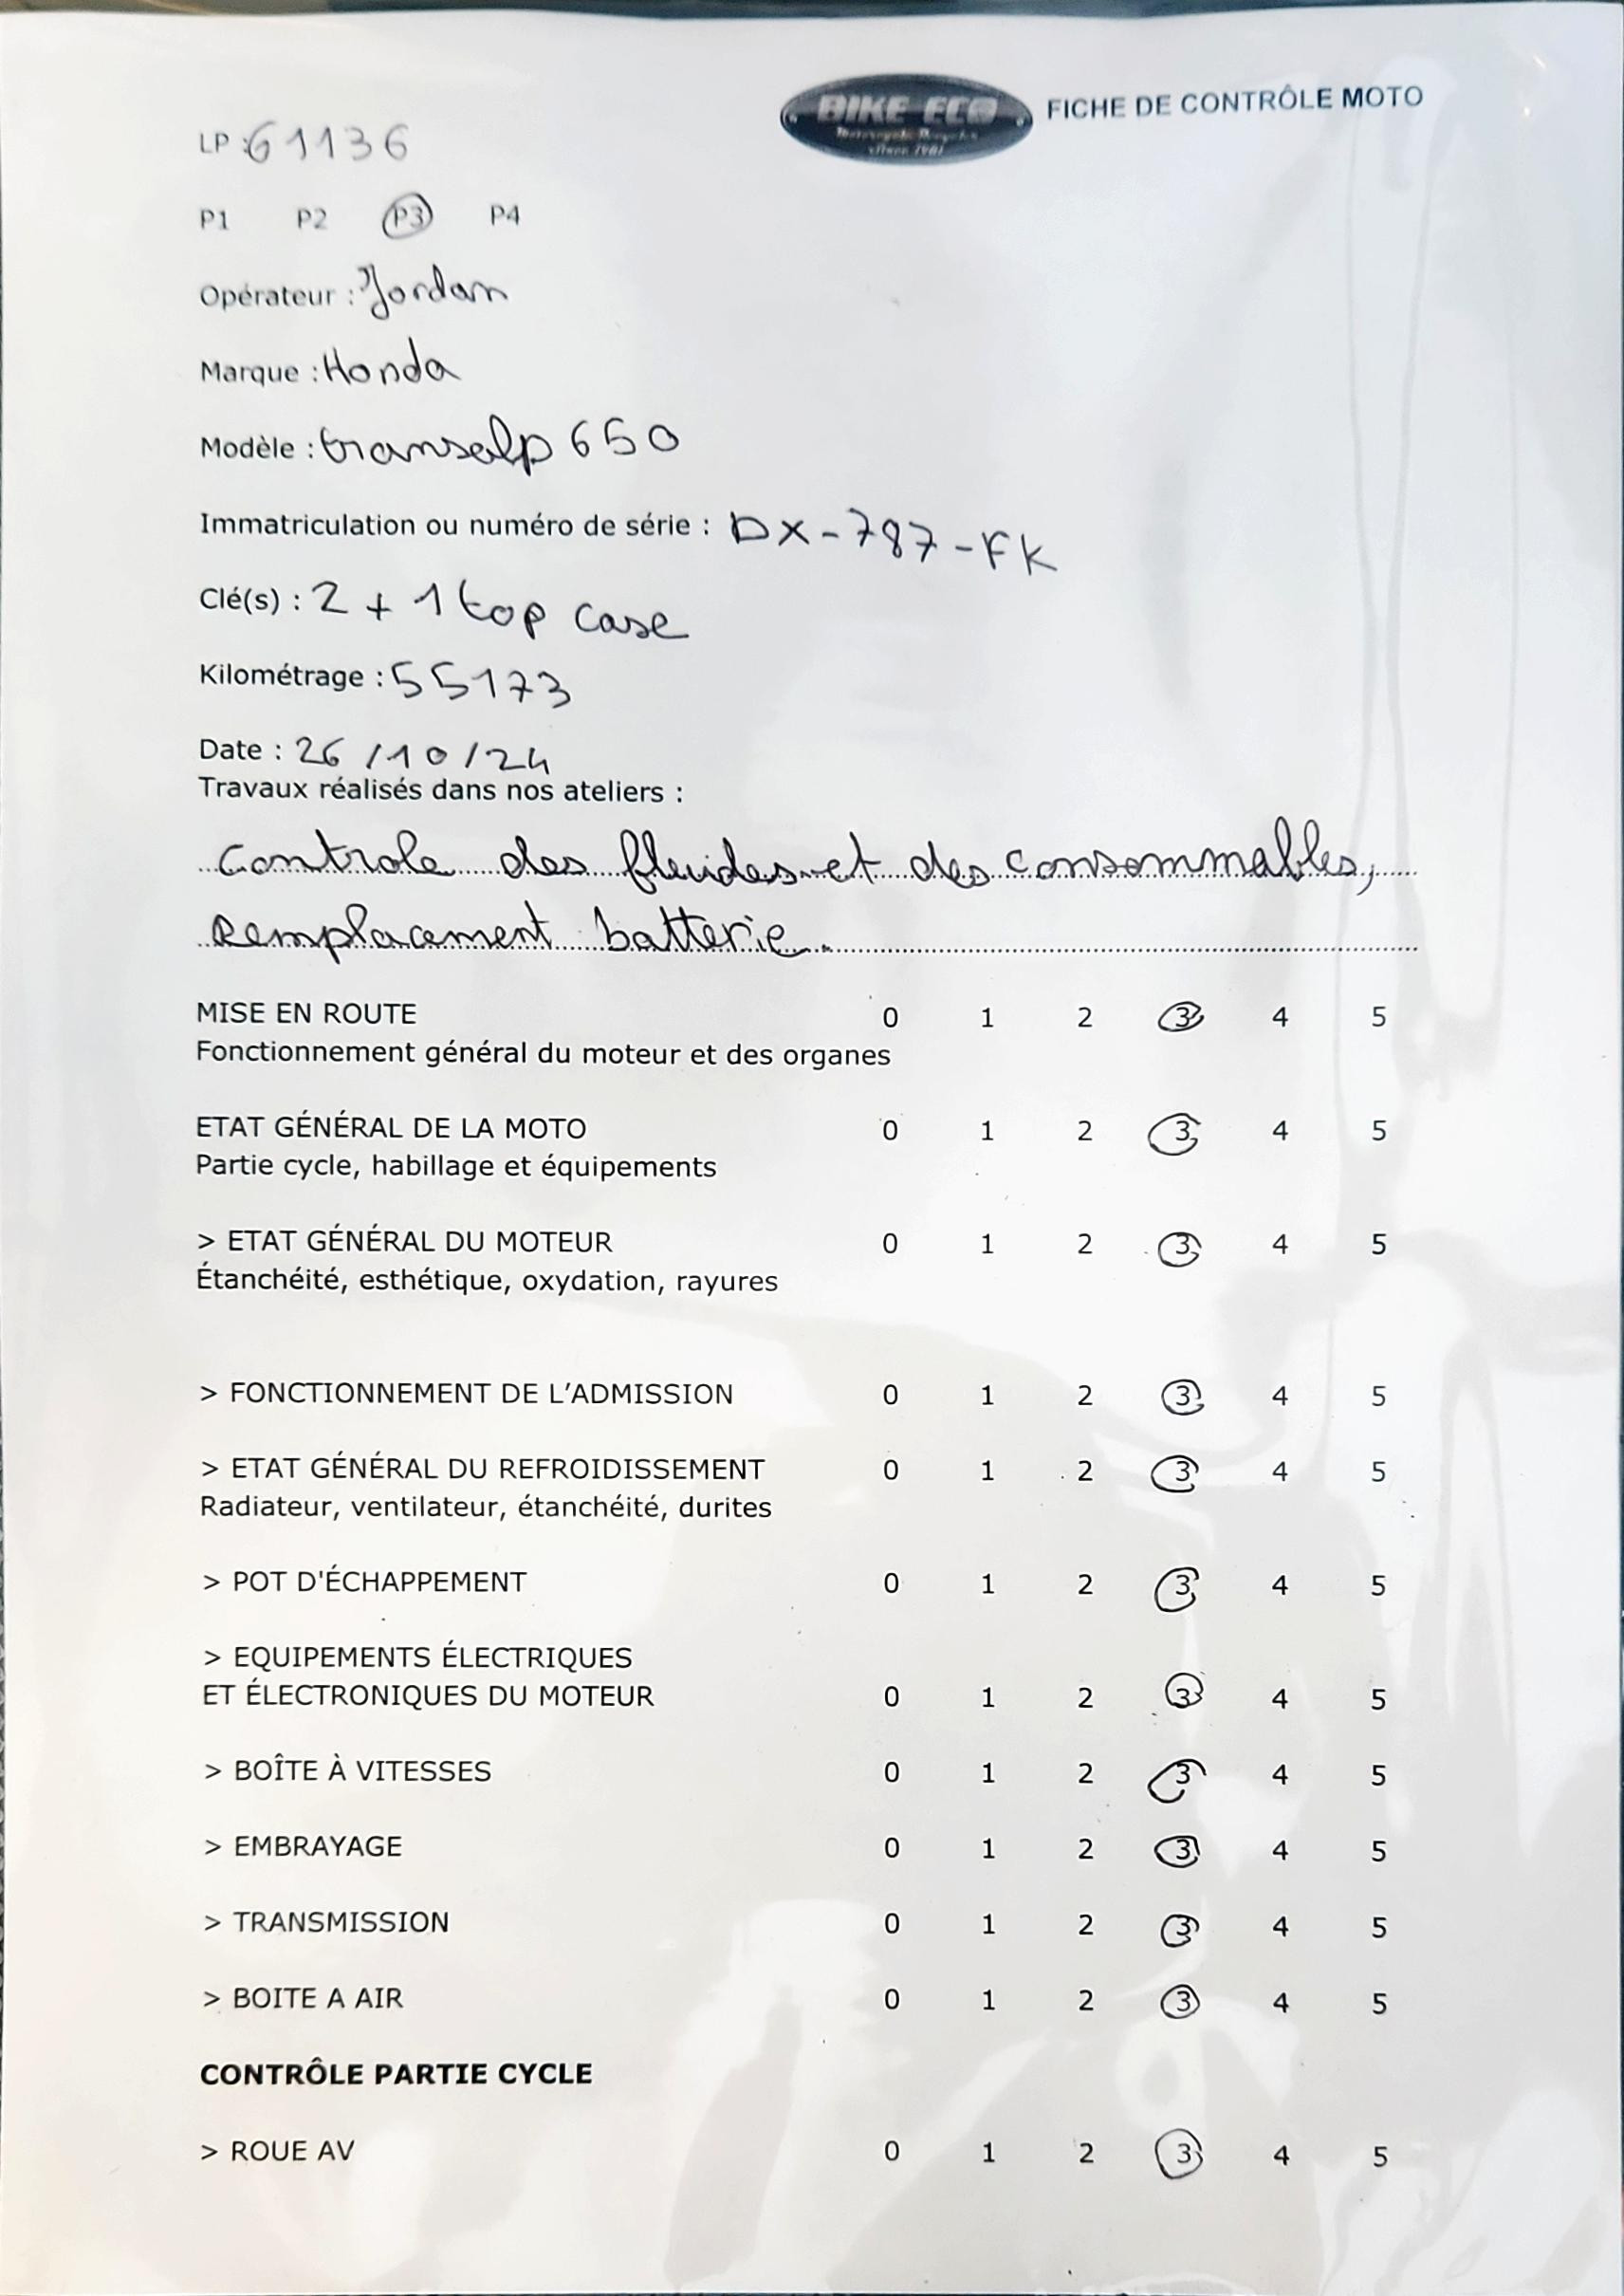 BIKE ECO
FICHE DE CONTRÔLE MOTO
LP : 61136
P1 P2 P3 P4
Opérateur : Jordan
Marque : Honda
Modèle : transalp 650
Immatriculation ou numéro de série : DX-787-FK
Clé(s) : 2 + 1 top case
Kilométrage : 55173
Date : 26/10/24
Travaux réalisés dans nos ateliers :
Controle des fluides et des consommables,
Remplacement batterie.
MISE EN ROUTE 0 1 2 3 4 5
Fonctionnement général du moteur et des organes
ETAT GÉNÉRAL DE LA MOTO 0 1 2 3 4 5
Partie cycle, habillage et équipements
> ETAT GÉNÉRAL DU MOTEUR 0 1 2 3 4 5
Étanchéité, esthétique, oxydation, rayures
> FONCTIONNEMENT DE L'ADMISSION 0 1 2 3 4 5
> ETAT GÉNÉRAL DU REFROIDISSEMENT 0 1 2 3 4 5
Radiateur, ventilateur, étanchéité, durites
> POT D'ÉCHAPPEMENT 0 1 2 3 4 5
> EQUIPEMENTS ÉLECTRIQUES
ET ÉLECTRONIQUES DU MOTEUR 0 1 2 3 4 5
> BOÎTE À VITESSES 0 1 2 3 4 5
> EMBRAYAGE 0 1 2 3 4 5
> TRANSMISSION 0 1 2 3 4 5
> BOITE A AIR 0 1 2 3 4 5
CONTRÔLE PARTIE CYCLE
> ROUE AV 0 1 2 3 4 5